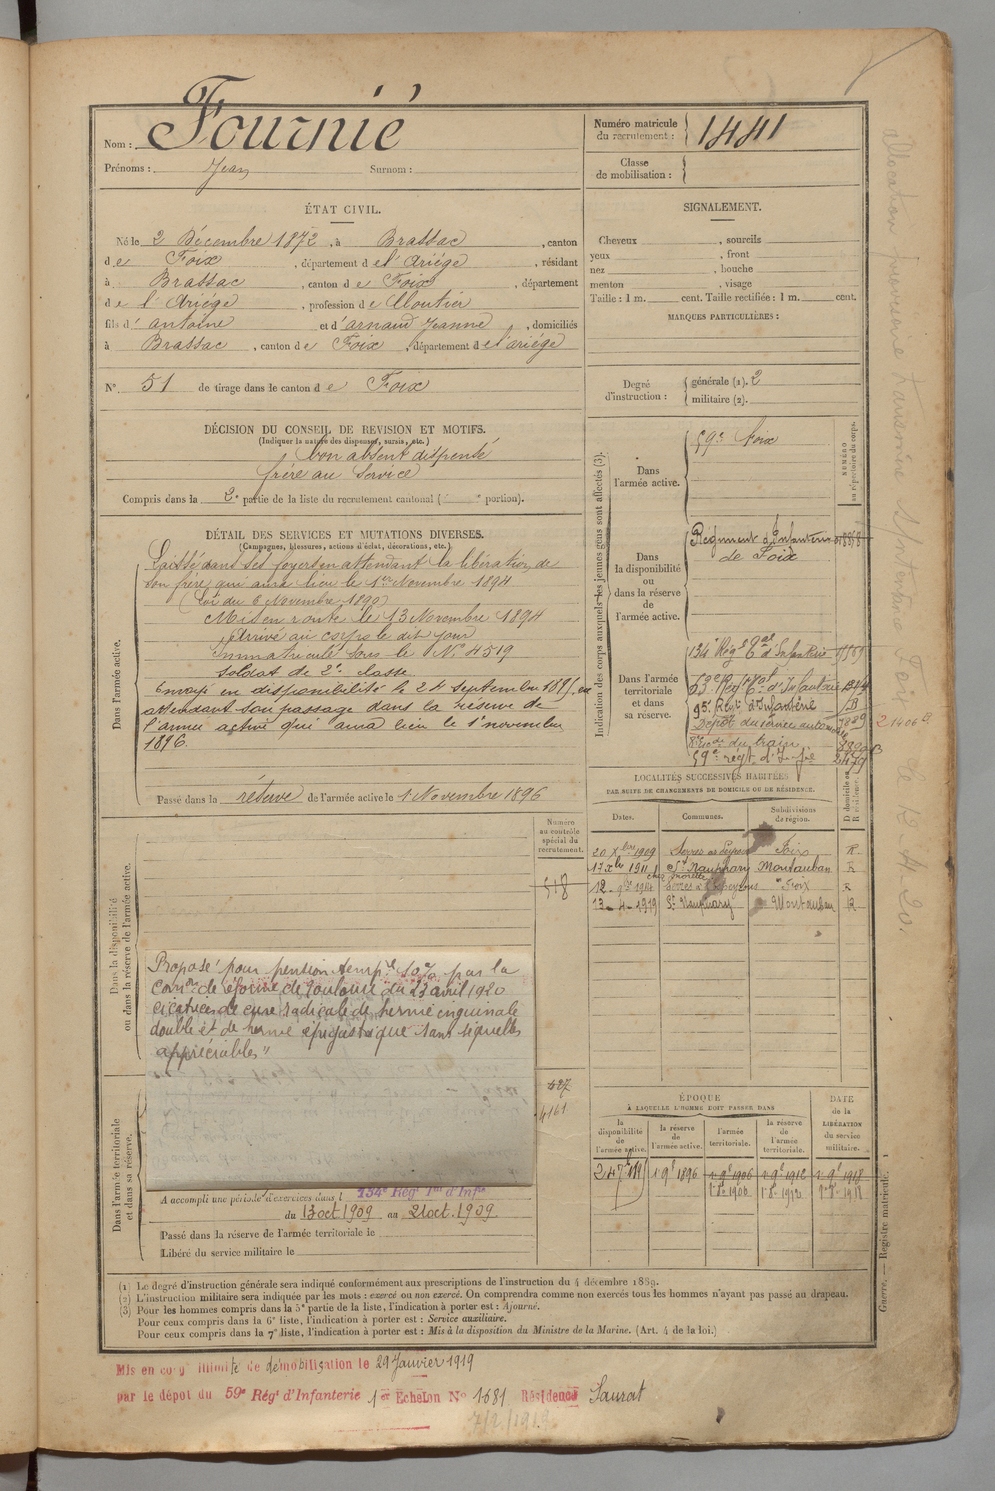 Nom : Fournié
Prénoms : Jean Surnom :
Numéro matricule
du recrutement : 1441
Classe
de mobilisation :
ÉTAT CIVIL.
Né le 2 Décembre 1872, à Brassac, canton
de Foix, département de l'Ariége, résidant
à Brassac, canton de Foix, département
de l'Ariége, profession de Cloutier
fils d' antoine et d'arnaud Jeanne, domiciliés
à Brassac, canton de Foix, département de l'ariége
N° 51 de tirage dans le canton de Foix
SIGNALEMENT.
Cheveux , sourcils
yeux , front
nez , bouche
menton , visage
Taille : 1 m. cent. Taille rectifiée : 1 m. cent.
MARQUES PARTICULIÈRES :
Degré
d'instruction :
générale (1). 2
militaire (2).
DÉCISION DU CONSEIL DE REVISION ET MOTIFS.
(Indiquer la nature des dispenses, sursis, etc.)
bon absent dispensé
frère au service
Compris dans la 2e partie de la liste du recrutement cantonal ( e portion).
DÉTAIL DES SERVICES ET MUTATIONS DIVERSES.
(Campagnes, blessures, actions d'éclat, décorations, etc.)
Dans l'armée active.
Laissé dans ses foyers en attendant la libération de
son frère qui aura lieu le 1er Novembre 1894
(Loi du 6 Novembre 1890)
Mis en route le 13 Novembre 1894
Arrivé au corps le dit jour
Immatriculé sous le N° 4519
soldat de 2e classe
Envoyé en disponibilité le 24 septembre 1895 en
attendant son passage dans la réserve de
l'armée active qui aura lieu le 1er novembre
1896.
Passé dans la réserve de l'armée active le 1 Novembre 1896
Indication des corps auxquels les jeunes gens sont affectés (3).
NUMÉRO
au répertoire du corps.
Dans
l'armée active.
59e Foix
Dans
la disponibilité
ou
dans la réserve
de
l'armée active.
Régiment d'Infanterie
de Foix
Dans l'armée
territoriale
et dans
sa réserve.
134e Régt Tal d'Infanterie
95e Régt d'Infanterie
Dépôt du service automobile
59e régt d'Infie
LOCALITÉS SUCCESSIVES HABITÉES
PAR SUITE DE CHANGEMENTS DE DOMICILE OU DE RÉSIDENCE.
Dates. Communes. Subdivisions
de région.
D domicile ou
R résidence.
20 Xbre 1909 Foix R
17 Xbre 1911 St Nauphary Montauban R
12 1914 Foix R
13-4-1919 St Nauphary Montauban R
Numéro
au contrôle
spécial du
recrutement.
518
427
4161
Dans la disponibilité
ou dans la réserve de l'armée active.
Proposé pour pension tempre 10% par la
Comon de réforme de Toulouse du 23 avril 1920
cicatrices de cure radicale de hernie inguinale
double et de hernie épigastrique sans séquelles
appréciables"
Dans l'armée territoriale
et dans sa réserve.
A accompli une période d'exercices dans l 134e Régt Tal d'Infie
du 13 oct 1909 au 21 oct. 1909
Passé dans la réserve de l'armée territoriale le
Libéré du service militaire le
ÉPOQUE
À LAQUELLE L'HOMME DOIT PASSER DANS
DATE
de la
LIBÉRATION
du service
militaire.
la
disponibilité
de
l'armée active.
la réserve
de
l'armée active.
l'armée
territoriale.
la réserve
de
l'armée
territoriale.
1 9e 1896 1 9e 1906 1 9e 1912 1 9e 1918
Guerre. — Registre matricule. 1
(1) Le degré d'instruction générale sera indiqué conformément aux prescriptions de l'instruction du 4 décembre 1889.
(2) L'instruction militaire sera indiquée par les mots : exercé ou non exercé. On comprendra comme non exercés tous les hommes n'ayant pas passé au drapeau.
(3) Pour les hommes compris dans la 5e partie de la liste, l'indication à porter est : Ajourné.
Pour ceux compris dans la 6e liste, l'indication à porter est : Service auxiliaire.
Pour ceux compris dans la 7e liste, l'indication à porter est : Mis à la disposition du Ministre de la Marine. (Art. 4 de la loi.)
Mis en congé illimité de démobilisation le 29 Janvier 1919
par le dépot du 59e Régt d'Infanterie 1er Echelon No 1681 Résidence Saurat